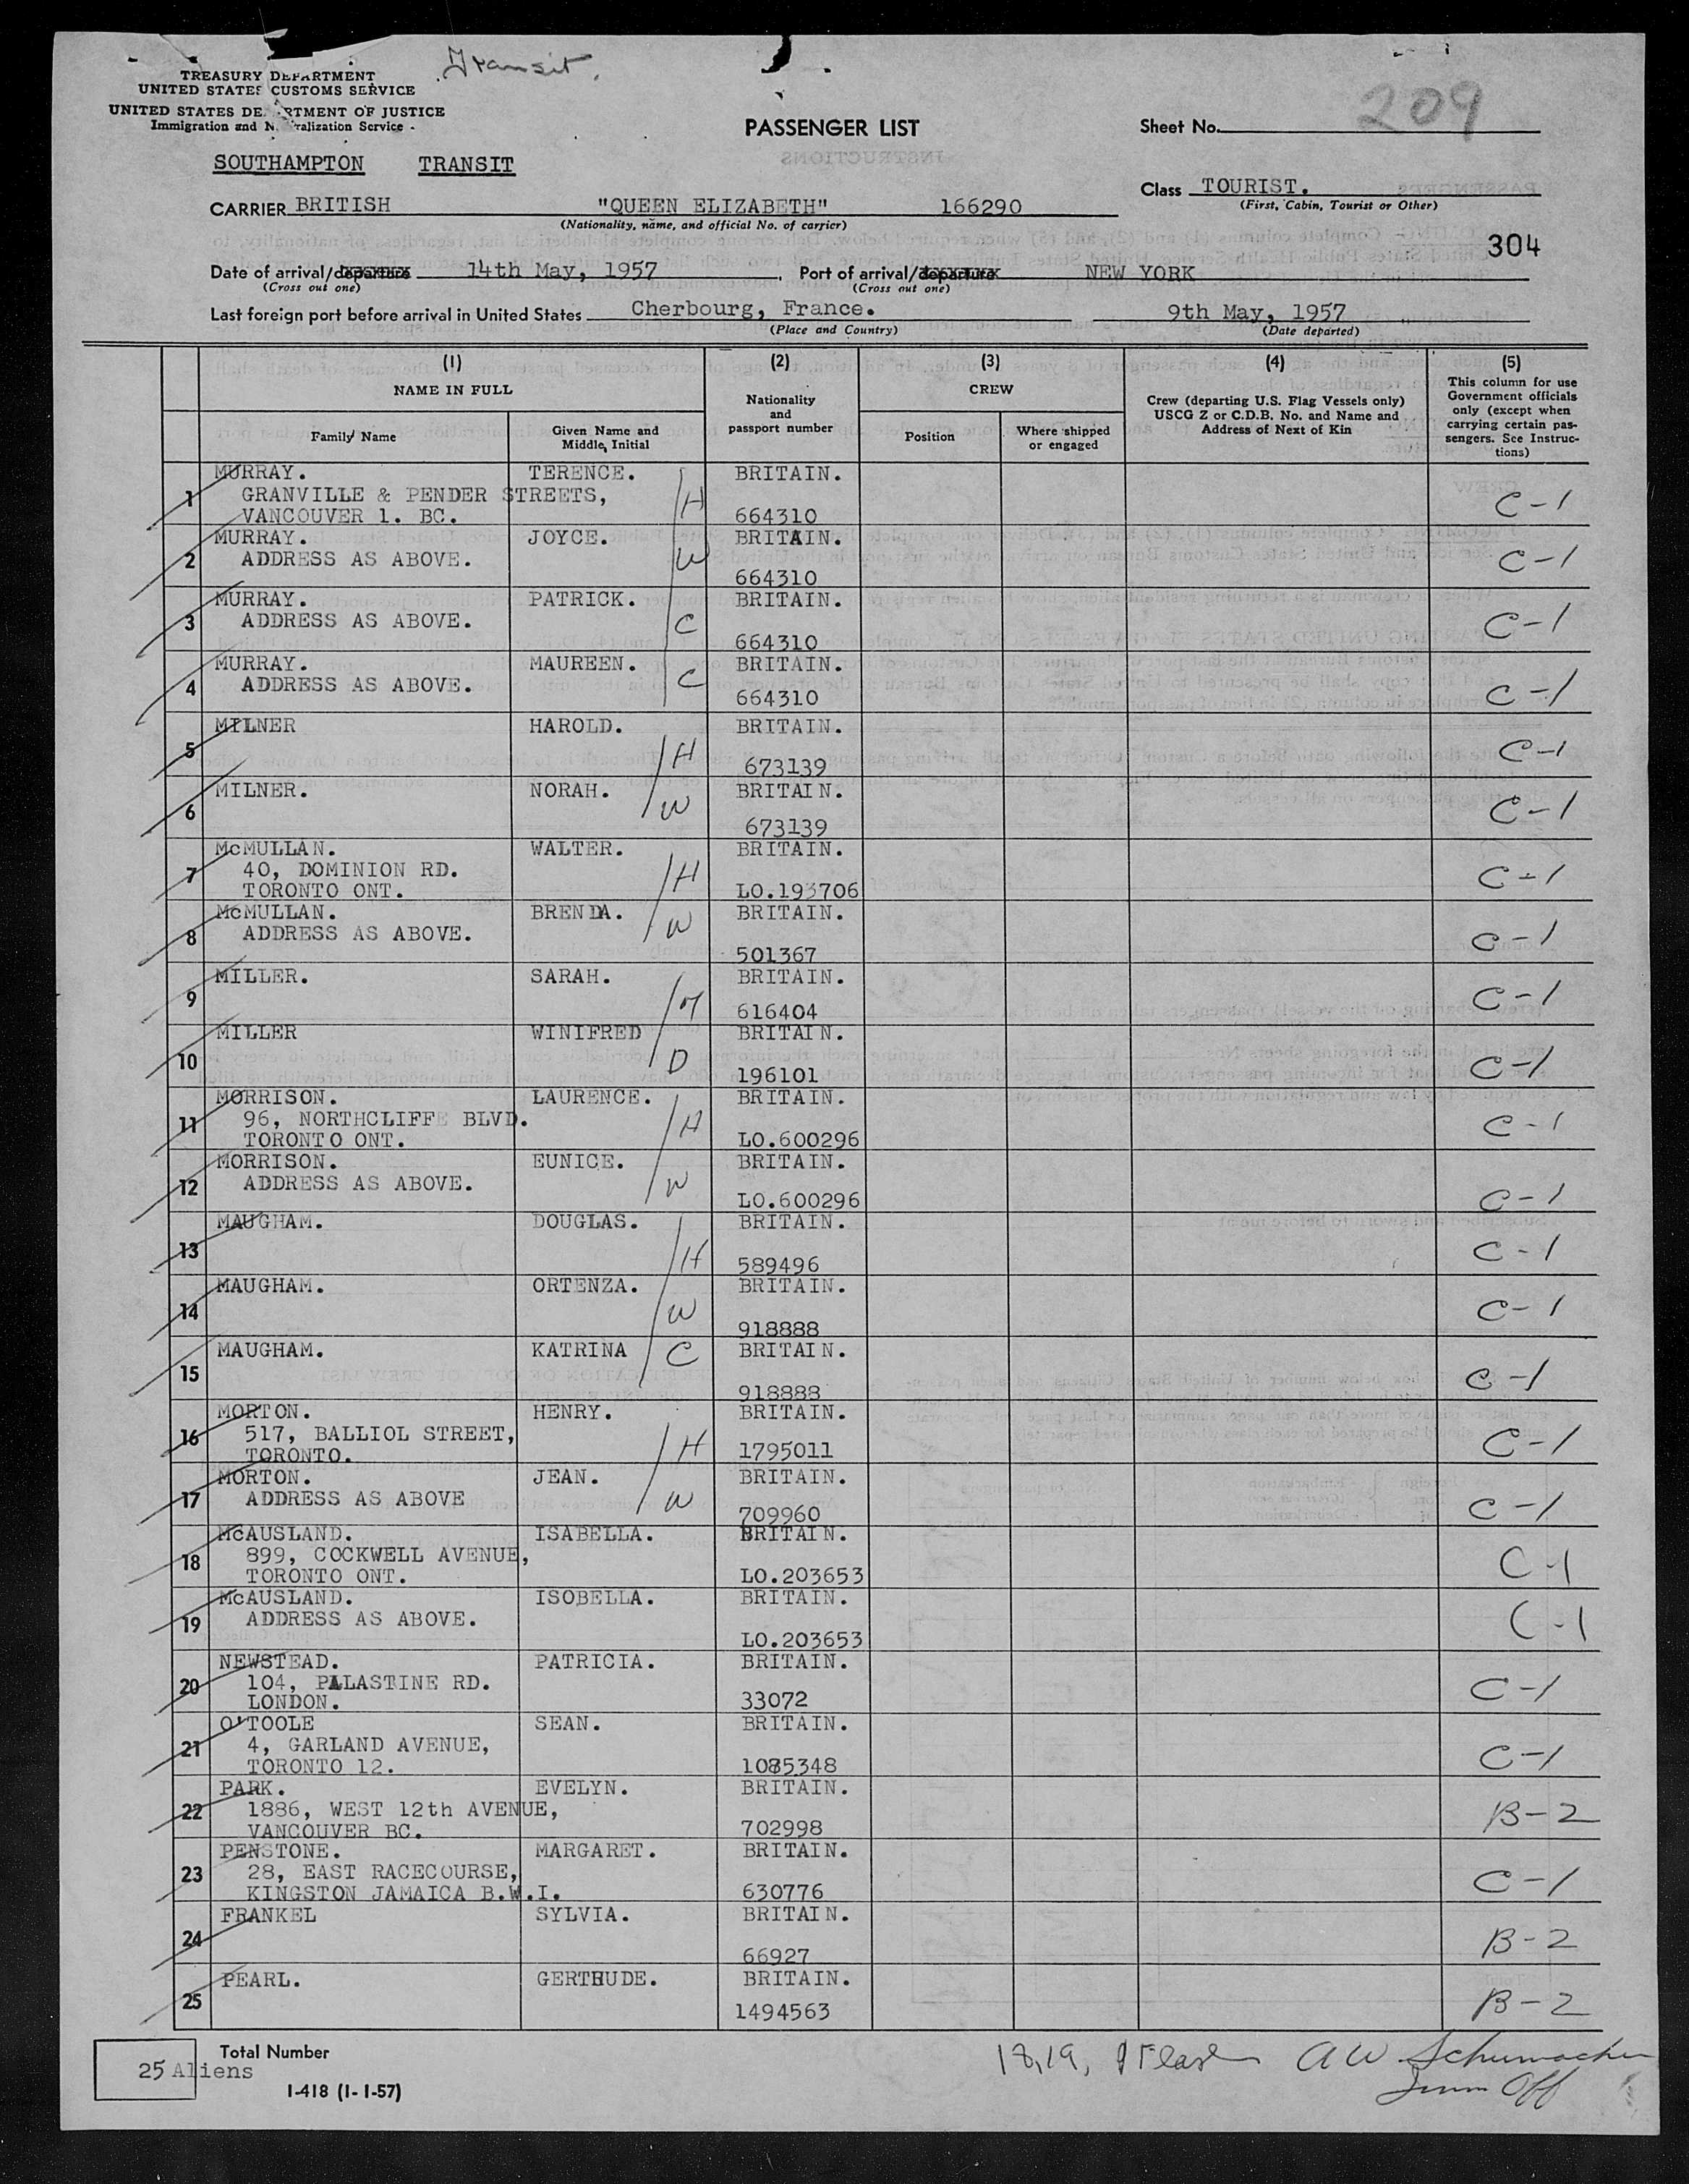 Transit.
TREASURY DEPARTMENT
UNITED STATES CUSTOMS SERVICE
UNITED STATES DE RTMENT OF JUSTICE
Immigration and N ralization Service
PASSENGER LIST
Sheet No. 209
SOUTHAMPTON TRANSIT
Class TOURIST.
(First, Cabin, Tourist or Other)
CARRIER BRITISH "QUEEN ELIZABETH" 166290
(Nationality, name, and official No. of carrier)
304
Date of arrival/departure 14th May, 1957 Port of arrival/departure NEW YORK
(Cross out one) (Cross out one)
Last foreign port before arrival in United States Cherbourg, France. 9th May, 1957
(Place and Country) (Date departed)
(1) (2) (3) (4) (5)
NAME IN FULL
Family Name
Given Name and Middle Initial
Nationality and passport number
CREW
Position
Where shipped or engaged
Crew (departing U.S. Flag Vessels only) USCG Z or C.D.B. No. and Name and Address of Next of Kin
This column for use Government officials only (except when carrying certain passengers. See Instructions)
1 MURRAY. TERENCE. H BRITAIN. C-1
GRANVILLE & PENDER STREETS,
VANCOUVER 1. BC. 664310
2 MURRAY. JOYCE. W BRITAIN. C-1
ADDRESS AS ABOVE.
664310
3 MURRAY. PATRICK. C BRITAIN. C-1
ADDRESS AS ABOVE.
664310
4 MURRAY. MAUREEN. C BRITAIN. C-1
ADDRESS AS ABOVE.
664310
5 MILNER HAROLD. H BRITAIN. C-1
673139
6 MILNER. NORAH. W BRITAIN. C-1
673139
7 McMULLAN. WALTER. H BRITAIN. C-1
40, DOMINION RD.
TORONTO ONT. LO.193706
8 McMULLAN. BRENDA. W BRITAIN. C-1
ADDRESS AS ABOVE.
501367
9 MILLER. SARAH. M BRITAIN. C-1
616404
10 MILLER WINIFRED D BRITAIN. C-1
196101
11 MORRISON. LAURENCE. H BRITAIN. C-1
96, NORTHCLIFFE BLVD.
TORONTO ONT. LO.600296
12 MORRISON. EUNICE. W BRITAIN. C-1
ADDRESS AS ABOVE.
LO.600296
13 MAUGHAM. DOUGLAS. H BRITAIN. C-1
589496
14 MAUGHAM. ORTENZA. W BRITAIN. C-1
918888
15 MAUGHAM. KATRINA C BRITAIN. C-1
918888
16 MORTON. HENRY. H BRITAIN. C-1
517, BALLIOL STREET,
TORONTO. 1795011
17 MORTON. JEAN. W BRITAIN. C-1
ADDRESS AS ABOVE
709960
18 McAUSLAND. ISABELLA. BRITAIN. C-1
899, COCKWELL AVENUE,
TORONTO ONT. LO.203653
19 McAUSLAND. ISOBELLA. BRITAIN. C-1
ADDRESS AS ABOVE.
LO.203653
20 NEWSTEAD. PATRICIA. BRITAIN. C-1
104, PALASTINE RD.
LONDON. 33072
21 O'TOOLE SEAN. BRITAIN. C-1
4, GARLAND AVENUE,
TORONTO 12. 1085348
22 PARK. EVELYN. BRITAIN. B-2
1886, WEST 12th AVENUE,
VANCOUVER BC. 702998
23 PENSTONE. MARGARET. BRITAIN. C-1
28, EAST RACECOURSE,
KINGSTON JAMAICA B.W.I. 630776
24 FRANKEL SYLVIA. BRITAIN. B-2
66927
25 PEARL. GERTRUDE. BRITAIN. B-2
1494563
Total Number
25 Aliens
I-418 (1-1-57)
18,19, A W Schumacher
Imm Off